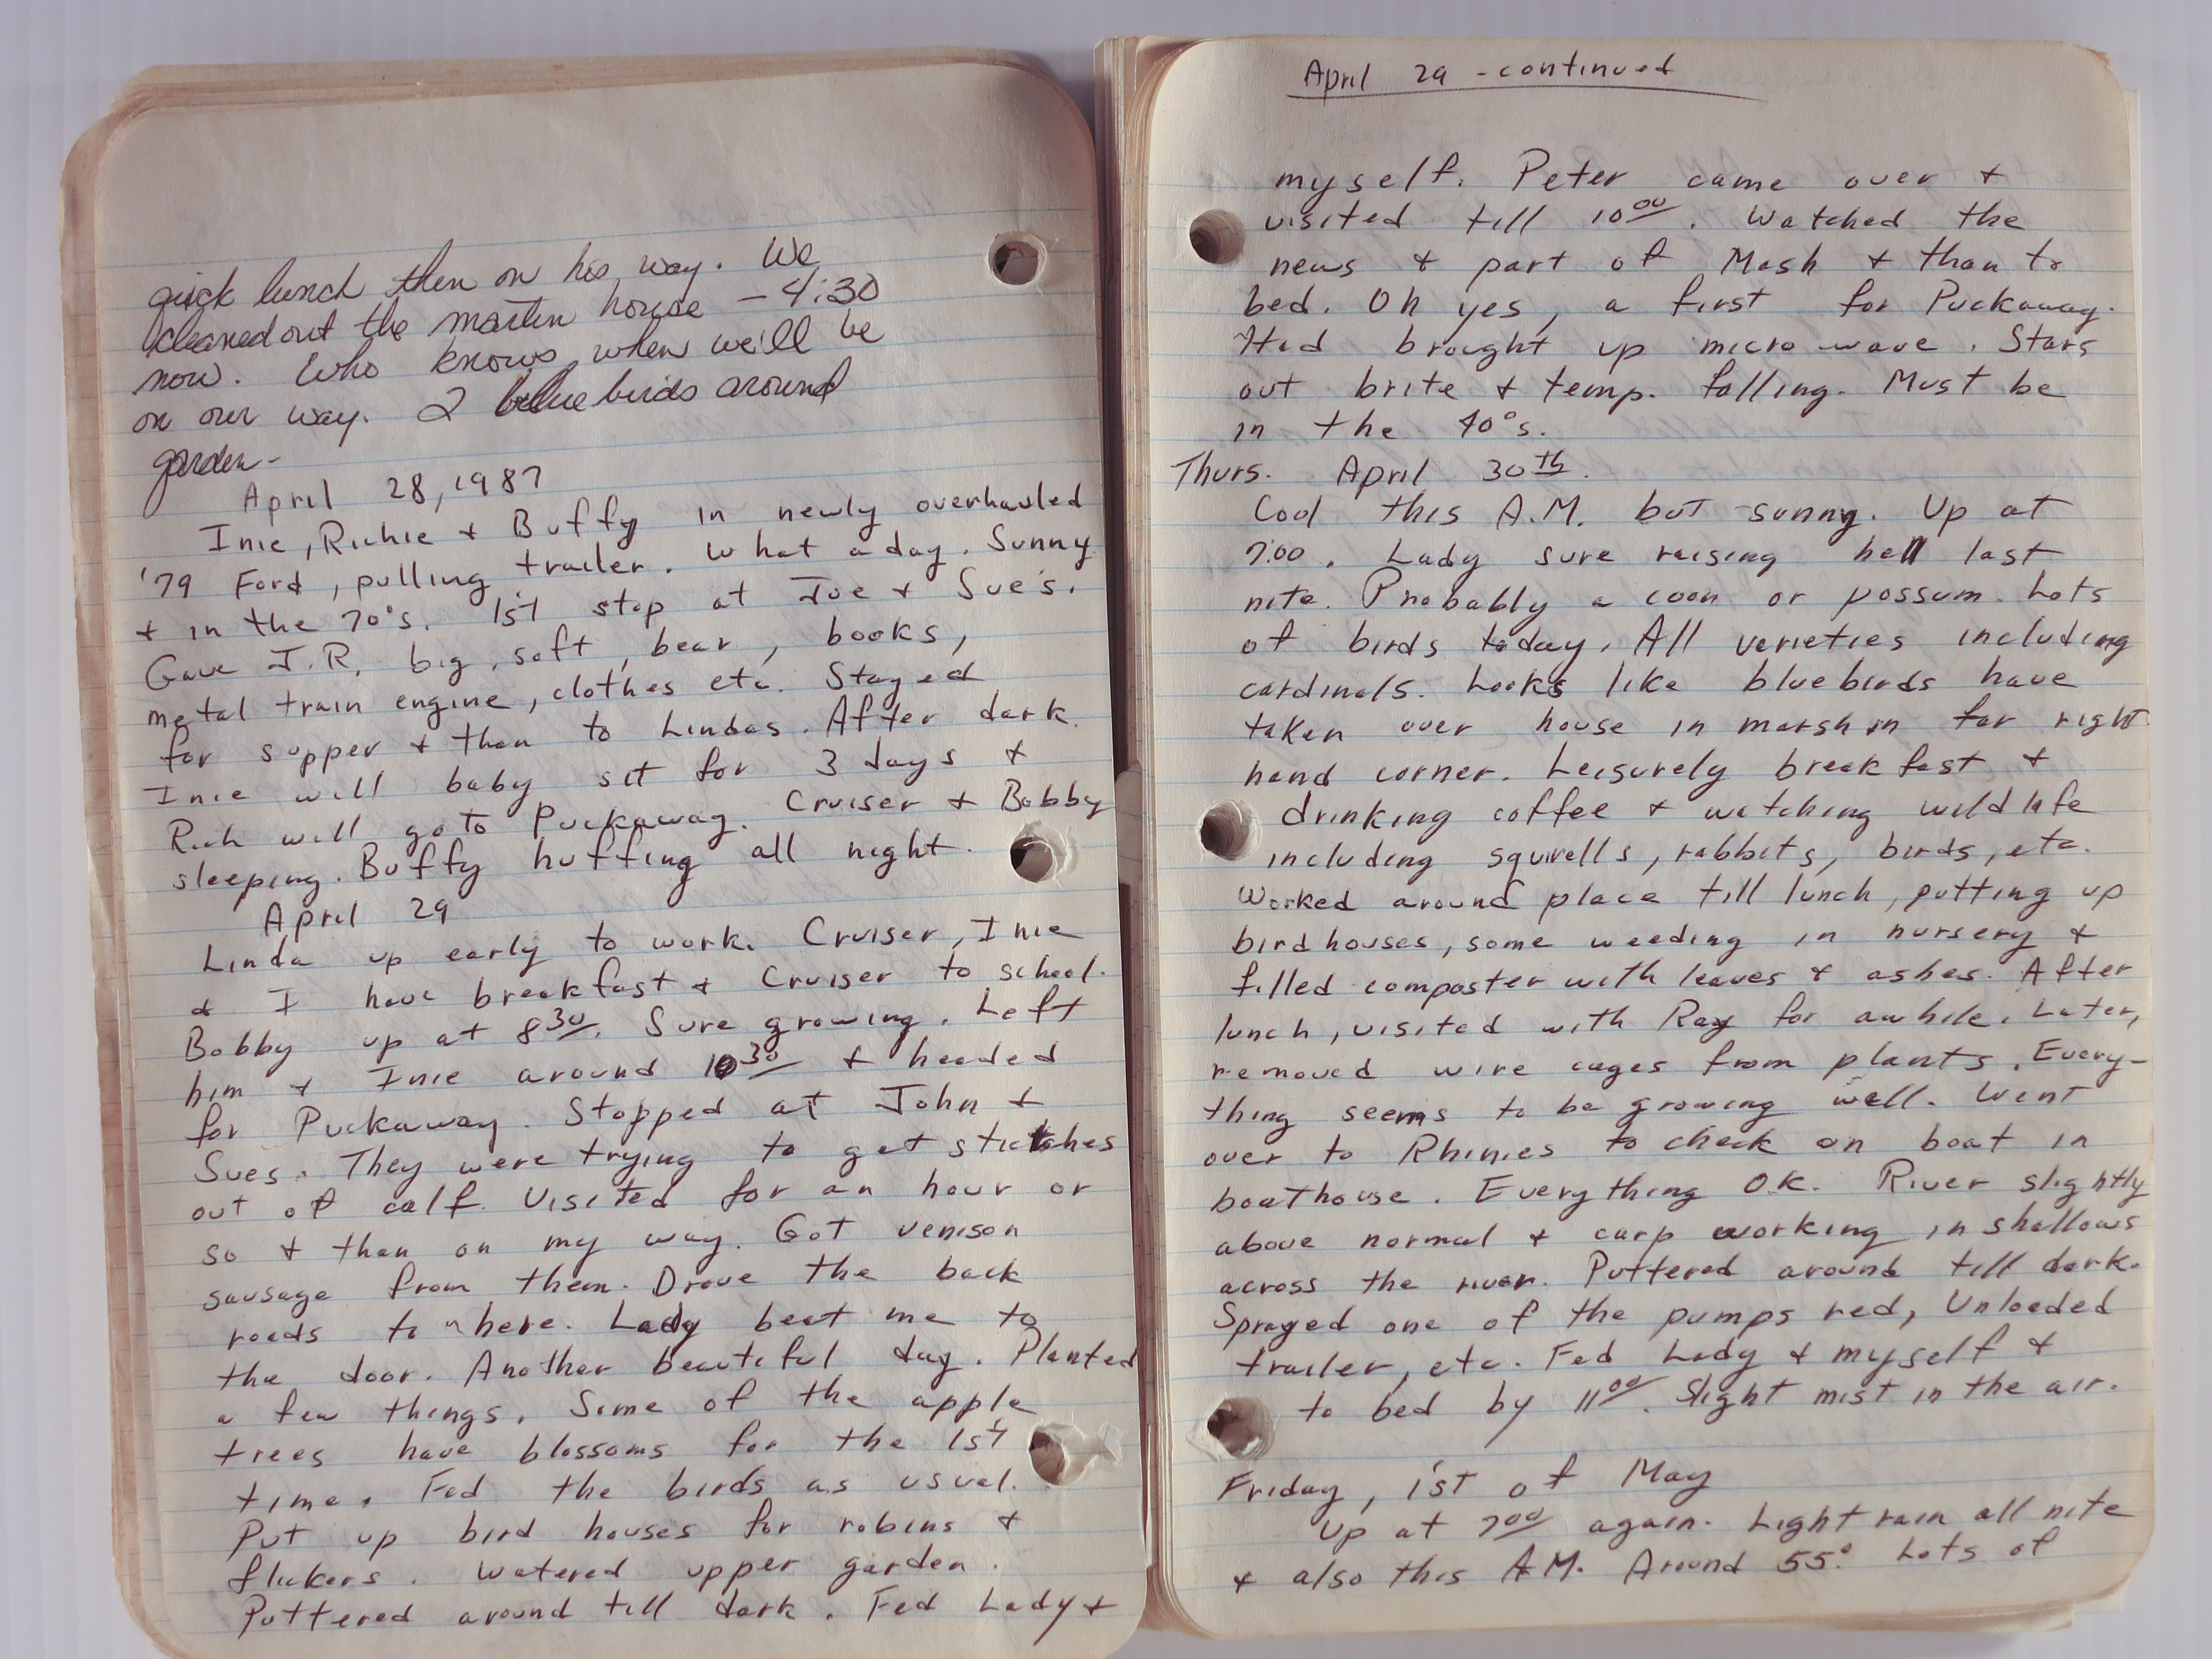 quick lunch then on his way. We
cleaned out the martin house - 4:30
now. Who knows when we'll be
on our way. 2 blue birds around
garden-
April 28, 1987
Inie, Richie + Buffy in newly overhauled
'79 Ford, pulling trailer. What a day. Sunny
+ in the 70°s. 1st stop at Joe + Sue's.
Gave J.R. big, soft, bear, books,
metal train engine, clothes etc. Stayed
for supper + then to Lindas. After dark.
Inie will baby sit for 3 days +
Rich will go to Puckaway. Cruiser + Bobby
sleeping. Buffy huffing all night.
April 29
Linda up early to work. Cruiser, Inie
+ I have breakfast + Cruiser to school.
Bobby up at 8 30. Sure growing. Left
him + Inie around 10 30 + headed
for Puckaway. Stopped at John +
Sues. They were trying to get stitches
out of calf. Visited for an hour or
so + then on my way. Got venison
sausage from them. Drove the back
roads to here. Lady beat me to
the door. Another beautiful day. Planted
a few things. Some of the apple
trees have blossoms for the 1st
time. Fed the birds as usual.
Put up bird houses for robins +
flickers. Watered upper garden.
Puttered around till dark. Fed Lady +
April 29 - continued
myself. Peter came over +
visited till 10 00. Watched the
news + part of Mash + than to
bed. Oh yes, a first for Puckaway.
Had brought up micro wave. Stars
out brite + temp. falling. Must be
in the 40°s.
Thurs. April 30th.
Cool this A.M. but sunny. Up at
7:00. Lady sure raising hell last
nite. Probably a coon or possum. Lots
of birds today. All verieties including
cardinals. Looks like bluebirds have
taken over house in marsh in far right
hand corner. Leisurely breakfast +
drinking coffee + watching wildlife
including squirells, rabbits, birds, etc.
Worked around place till lunch, putting up
birdhouses, some weeding in nursery +
filled composter with leaves + ashes. After
lunch, visited with Ray for awhile. Later,
removed wire cages from plants. Every-
thing seems to be growing well. Went
over to Rhinies to check on boat in
boathouse. Everything O.K. River slightly
above normal + carp working in shallows
across the river. Puttered around till dark.
Sprayed one of the pumps red, Unloaded
trailer, etc. Fed Lady + myself +
to bed by 11 00. Slight mist in the air.
Friday, 1st of May
Up at 7 00 again. Light rain all nite
+ also this A.M. Around 55°. Lots of